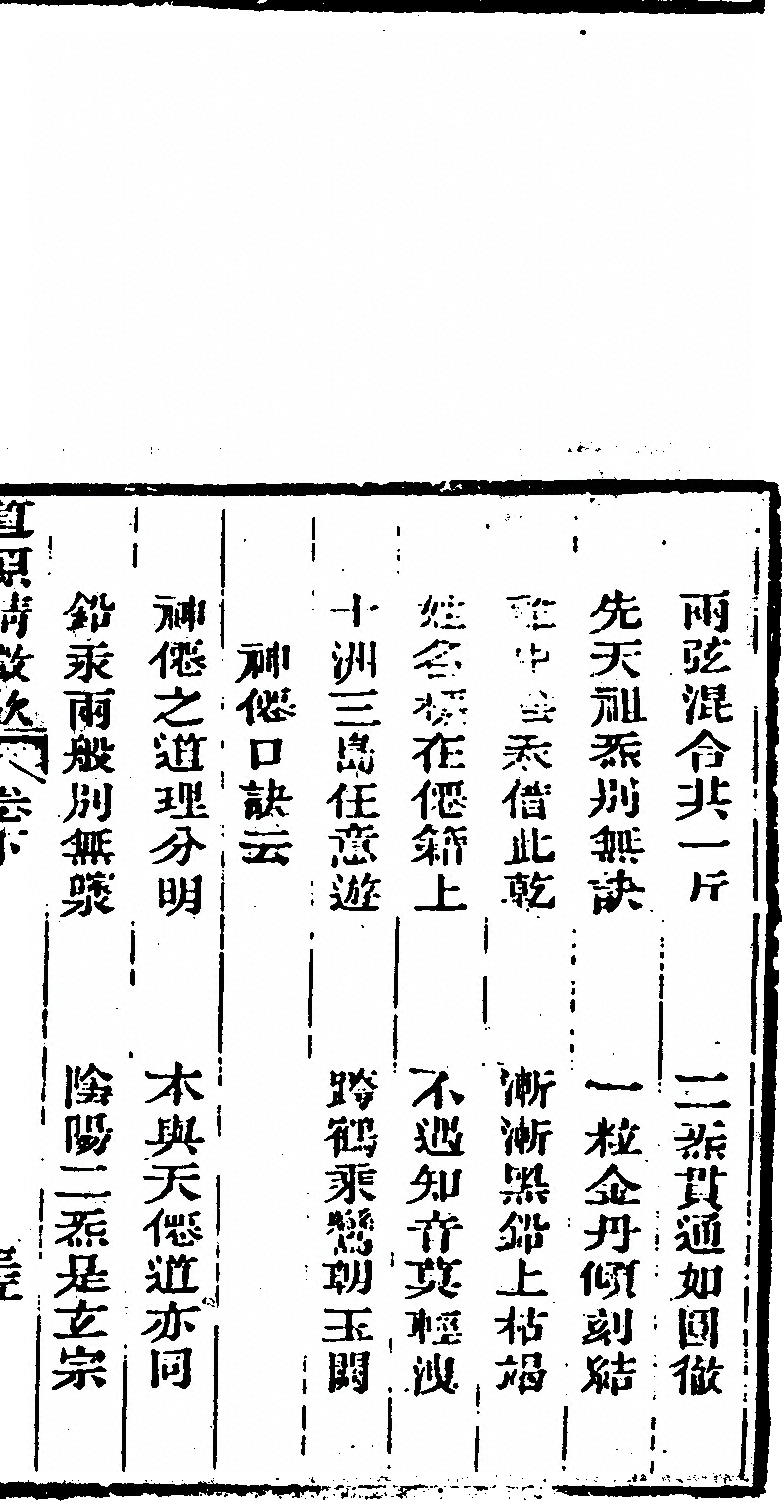 兩弦混合共一斤　二炁貫通如圓徹
先天祖炁別無訣　一粒金丹傾刻結
中炁借此乾　漸漸黑鉛上枯竭
姓名標在僊籍上　不遇知音莫輕洩
十洲三島任意遊　跨鶴乘鸞朝玉闕
神僊口訣云
神僊之道理分明　本與天僊道亦同
鉛汞兩般別無藥　陰陽二炁是玄宗
卷下